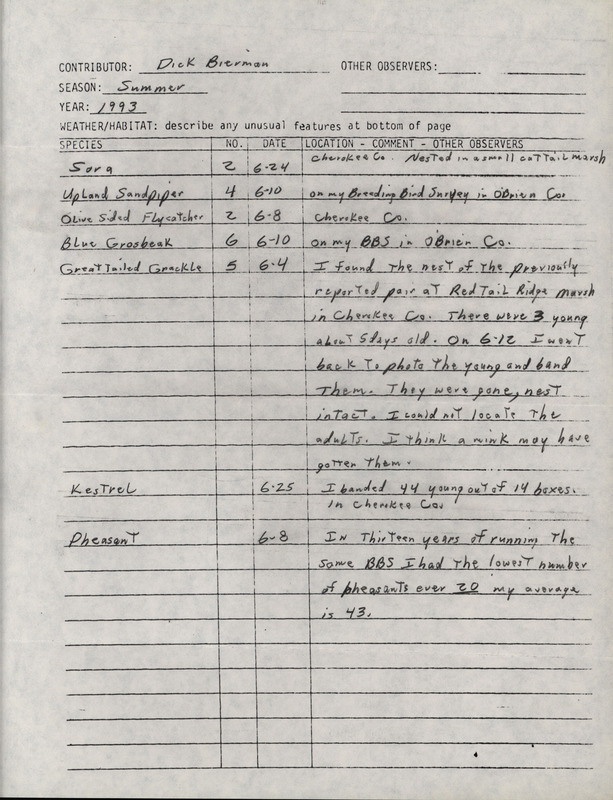 CONTRIBUTOR: Dick Bierman OTHER OBSERVERS:
SEASON: Summer
YEAR: 1993
WEATHER/HABITAT: describe any unusual features at bottom of page
SPECIES NO. DATE LOCATION - COMMENT - OTHER OBSERVERS
Sora 2 6-24 Cherokee Co. Nested in a small cattail marsh
Upland Sandpiper 4 6-10 on my Breeding Bird Survey in O'Brien Co.
Olive Sided Flycatcher 2 6-8 Cherokee Co.
Blue Grosbeak 6 6-10 on my BBS in O'Brien Co.
Great Tailed Grackle 5 6-4 I found the nest of the previously
reported pair at Red Tail Ridge marsh
in Cherokee Co. There were 3 young
about 5 days old. On 6-12 I went
back to photo the young and band
Them. They were gone, nest
intact. I could not locate the
adults. I think a mink may have
gotten them.
Kestrel 6-25 I banded 44 young out of 14 boxes.
in Cherokee Co.
Pheasant 6-8 In Thirteen years of running the
same BBS I had the lowest number
of pheasants ever 20 my average
is 43.